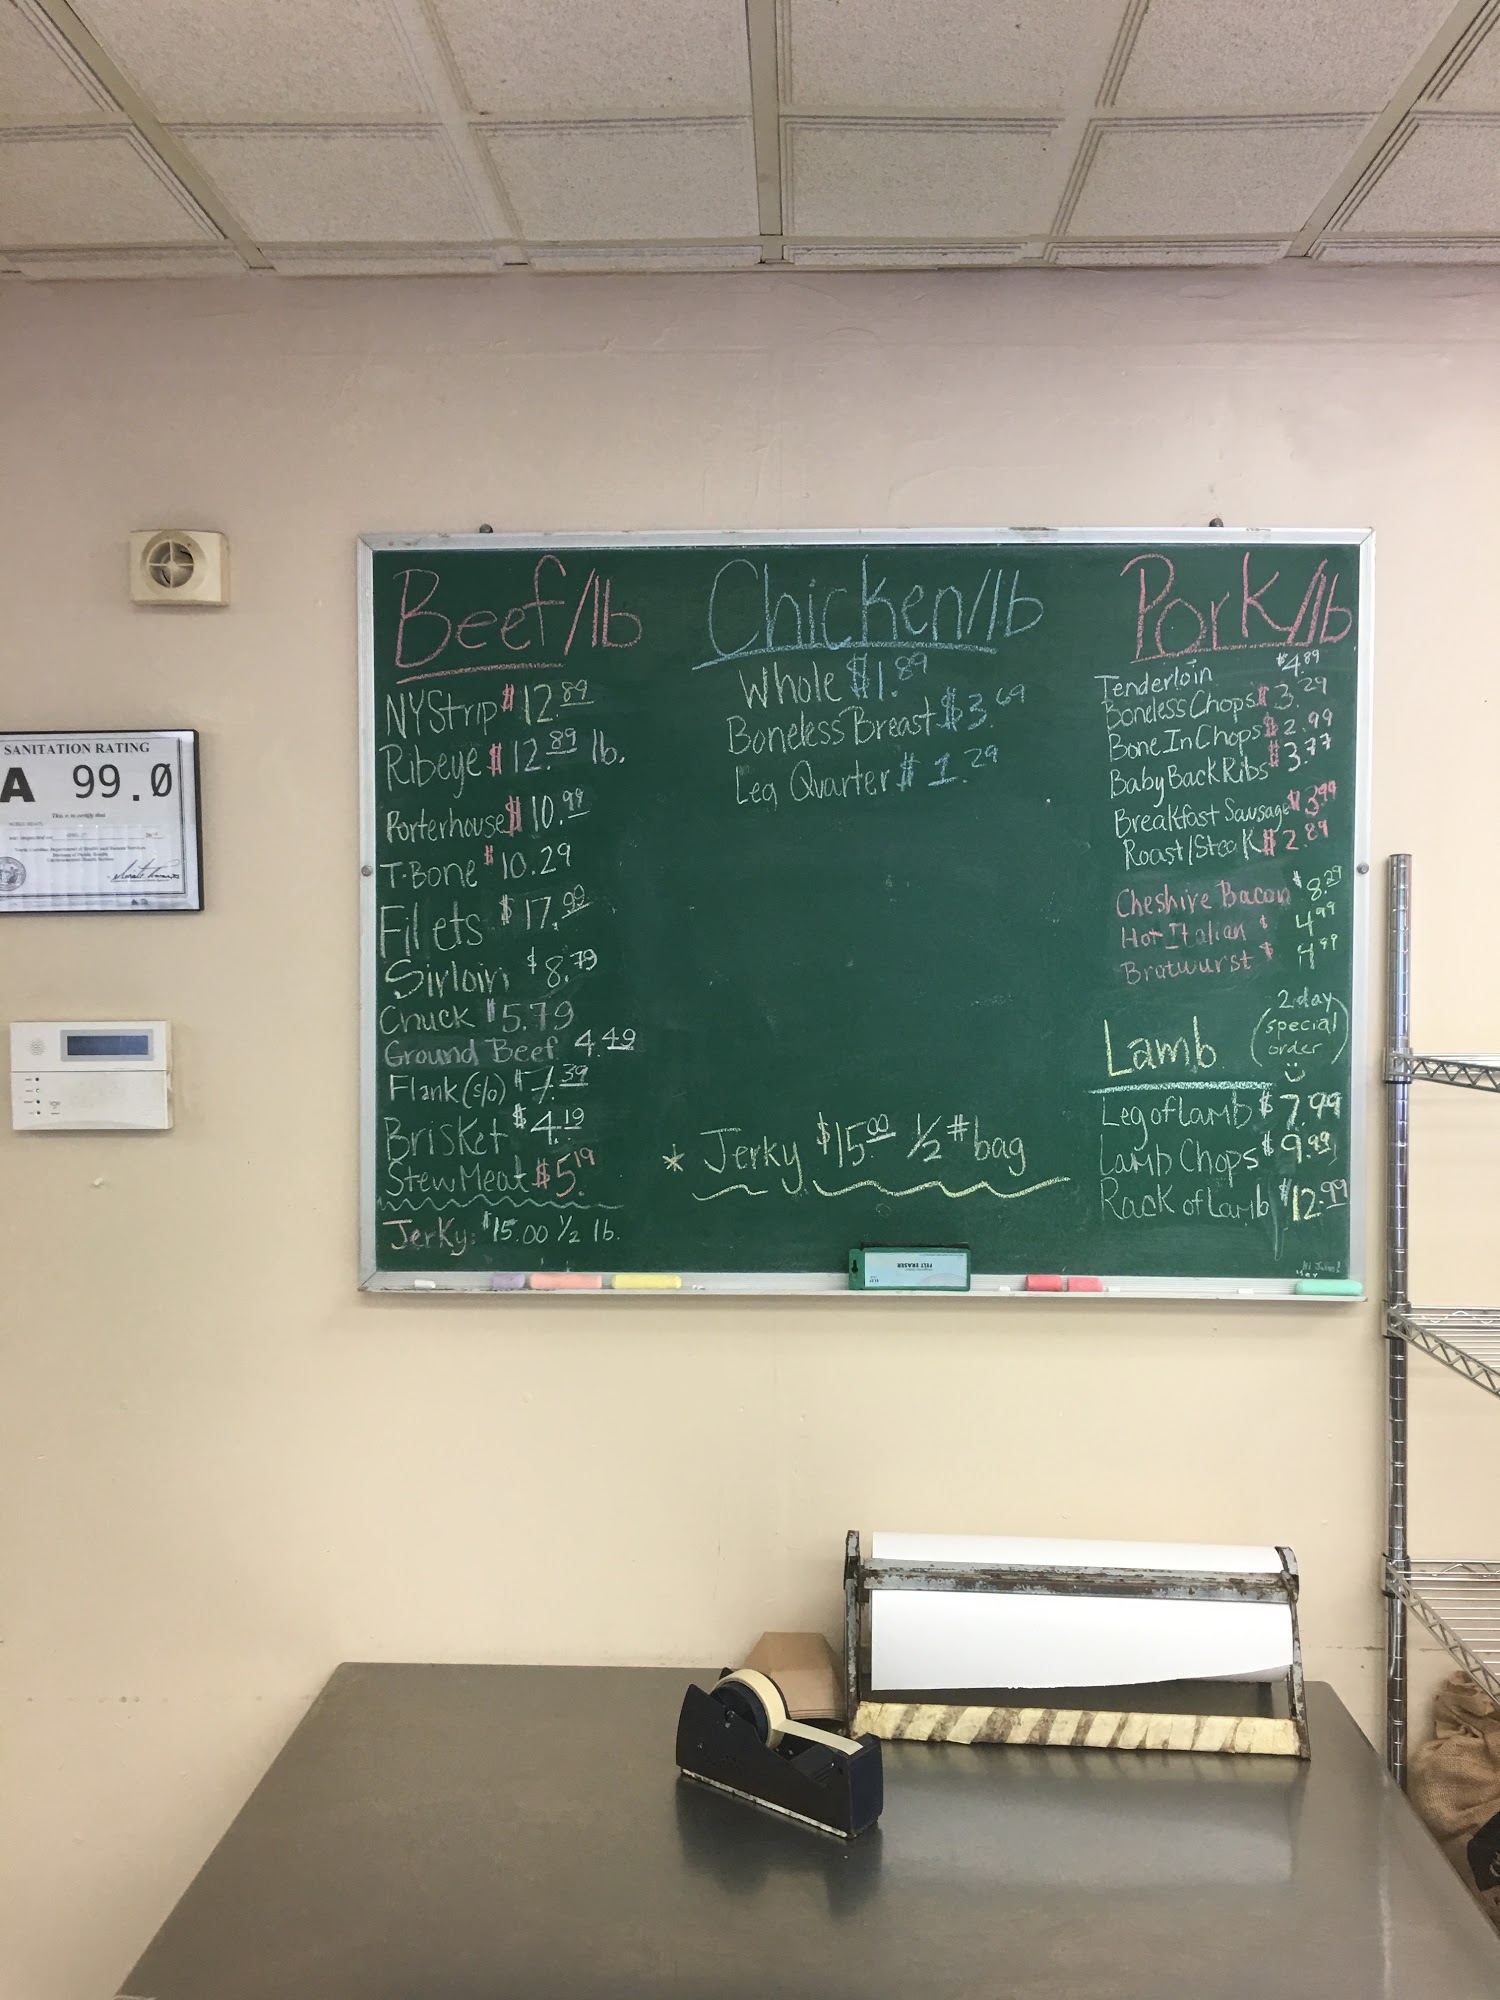 SANITATION RATING
A 99.0
This is to certify that
North Carolina Department of Health and Human Services
Division of Public Health
Environmental Health Section
Beef/lb
NY Strip $12.89
Ribeye $12.89 lb.
Porterhouse $10.99
T-Bone $10.29
Filets $17.99
Sirloin $8.79
Chuck $5.79
Ground Beef 4.49
Flank (s/o) $7.39
Brisket $4.19
Stew Meat $5.19
Jerky: $15.00 1/2 lb.
Chicken/lb
Whole $1.89
Boneless Breast $3.69
Leg Quarter $1.29
* Jerky $15.00 1/2 # bag
Pork/lb
Tenderloin $4.89
Boneless Chops $3.29
Bone In Chops $2.99
Baby Back Ribs $3.77
Breakfast Sausage $3.99
Roast/Steak $2.89
Cheshire Bacon $8.29
Hot Italian $4.99
Bratwurst $4.99
Lamb (2 day special order)
Leg of Lamb $7.99
Lamb Chops $9.99
Rack of Lamb $12.99
FELT ERASER